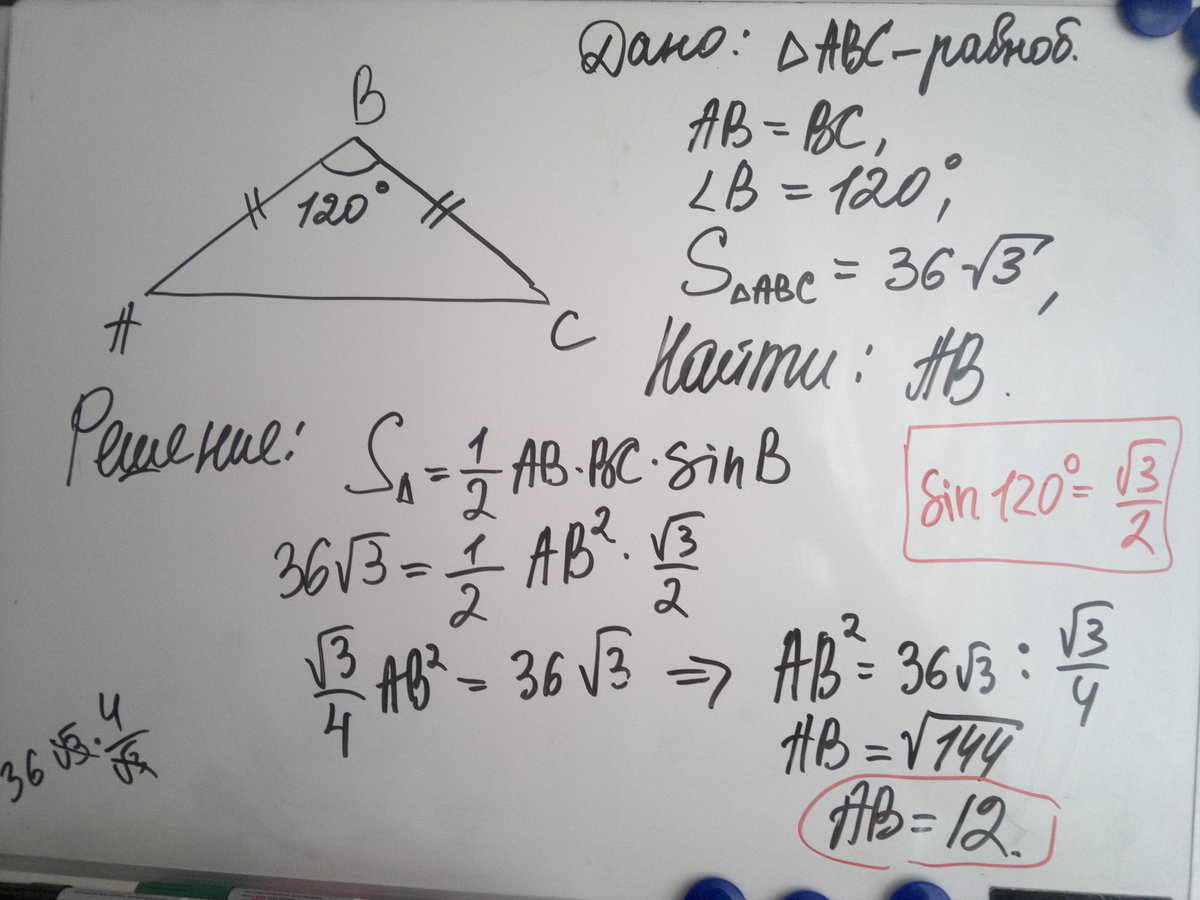 B
120°
A
C
Дано: △ABC – равноб.
AB = BC,
∠B = 120°,
S△ABC = 36√3,
Найти: AB.
Решение: S△ = 1/2 AB · BC · sin B
sin 120° = √3/2
36√3 = 1/2 AB² · √3/2
√3/4 AB² = 36√3 ⇒ AB² = 36√3 : √3/4
36√3 · 4/√3
AB = √144
AB = 12.